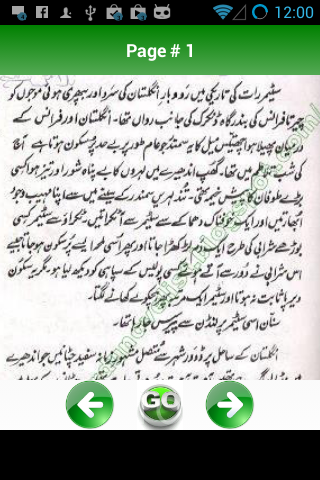 12:00
Page # 1
سٹیمر رات کی تاریکی میں رودبارِ انگلستان کی سرد اور بپھری ہوئی موجوں کو
چیرتا فرانس کی بندرگاہ ڈنکرک کی جانب رواں تھا۔ انگلستان اور فرانس کے
درمیان پھیلا ہوا چھبیس میل کا یہ سمندر جو عام طور پر بے حد پُرسکون ہوتا ہے آج
کی شب تلاطم میں تھا۔ گھپ اندھیرے میں لہروں کا بے پناہ شور اور تیز ہوا کسی
بڑے طوفان کا پیش خیمہ تھی۔ تُند لہریں سمندر کے سینے میں سے اپنا مہیب وجود
اُبھارتیں اور ایک خوفناک دھماکے سے سٹیمر سے آ ٹکراتیں۔ ٹکراؤ سے سٹیمر کسی
بوڑھے شرابی کی طرح ایک دم لڑکھڑا جاتا اور پھر اُسی طرح ایسے پُرسکون ہو جاتا جیسے
اس شرابی نے دُور سے آتے ہوئے کسی پولیس کے سپاہی کو دیکھ لیا ہو۔ مگر یہ سکون
دیرپا ثابت نہ ہوتا اور سٹیمر ایک مرتبہ پھر ہچکولے کھانے لگتا۔
سنان اسی سٹیمر پر لنڈن سے پیرس جا رہا تھا۔
انگلستان کے ساحل پر ڈوور شہر سے متصل مشہورِ زمانہ سفید چٹانیں جو اندھیرے
GO